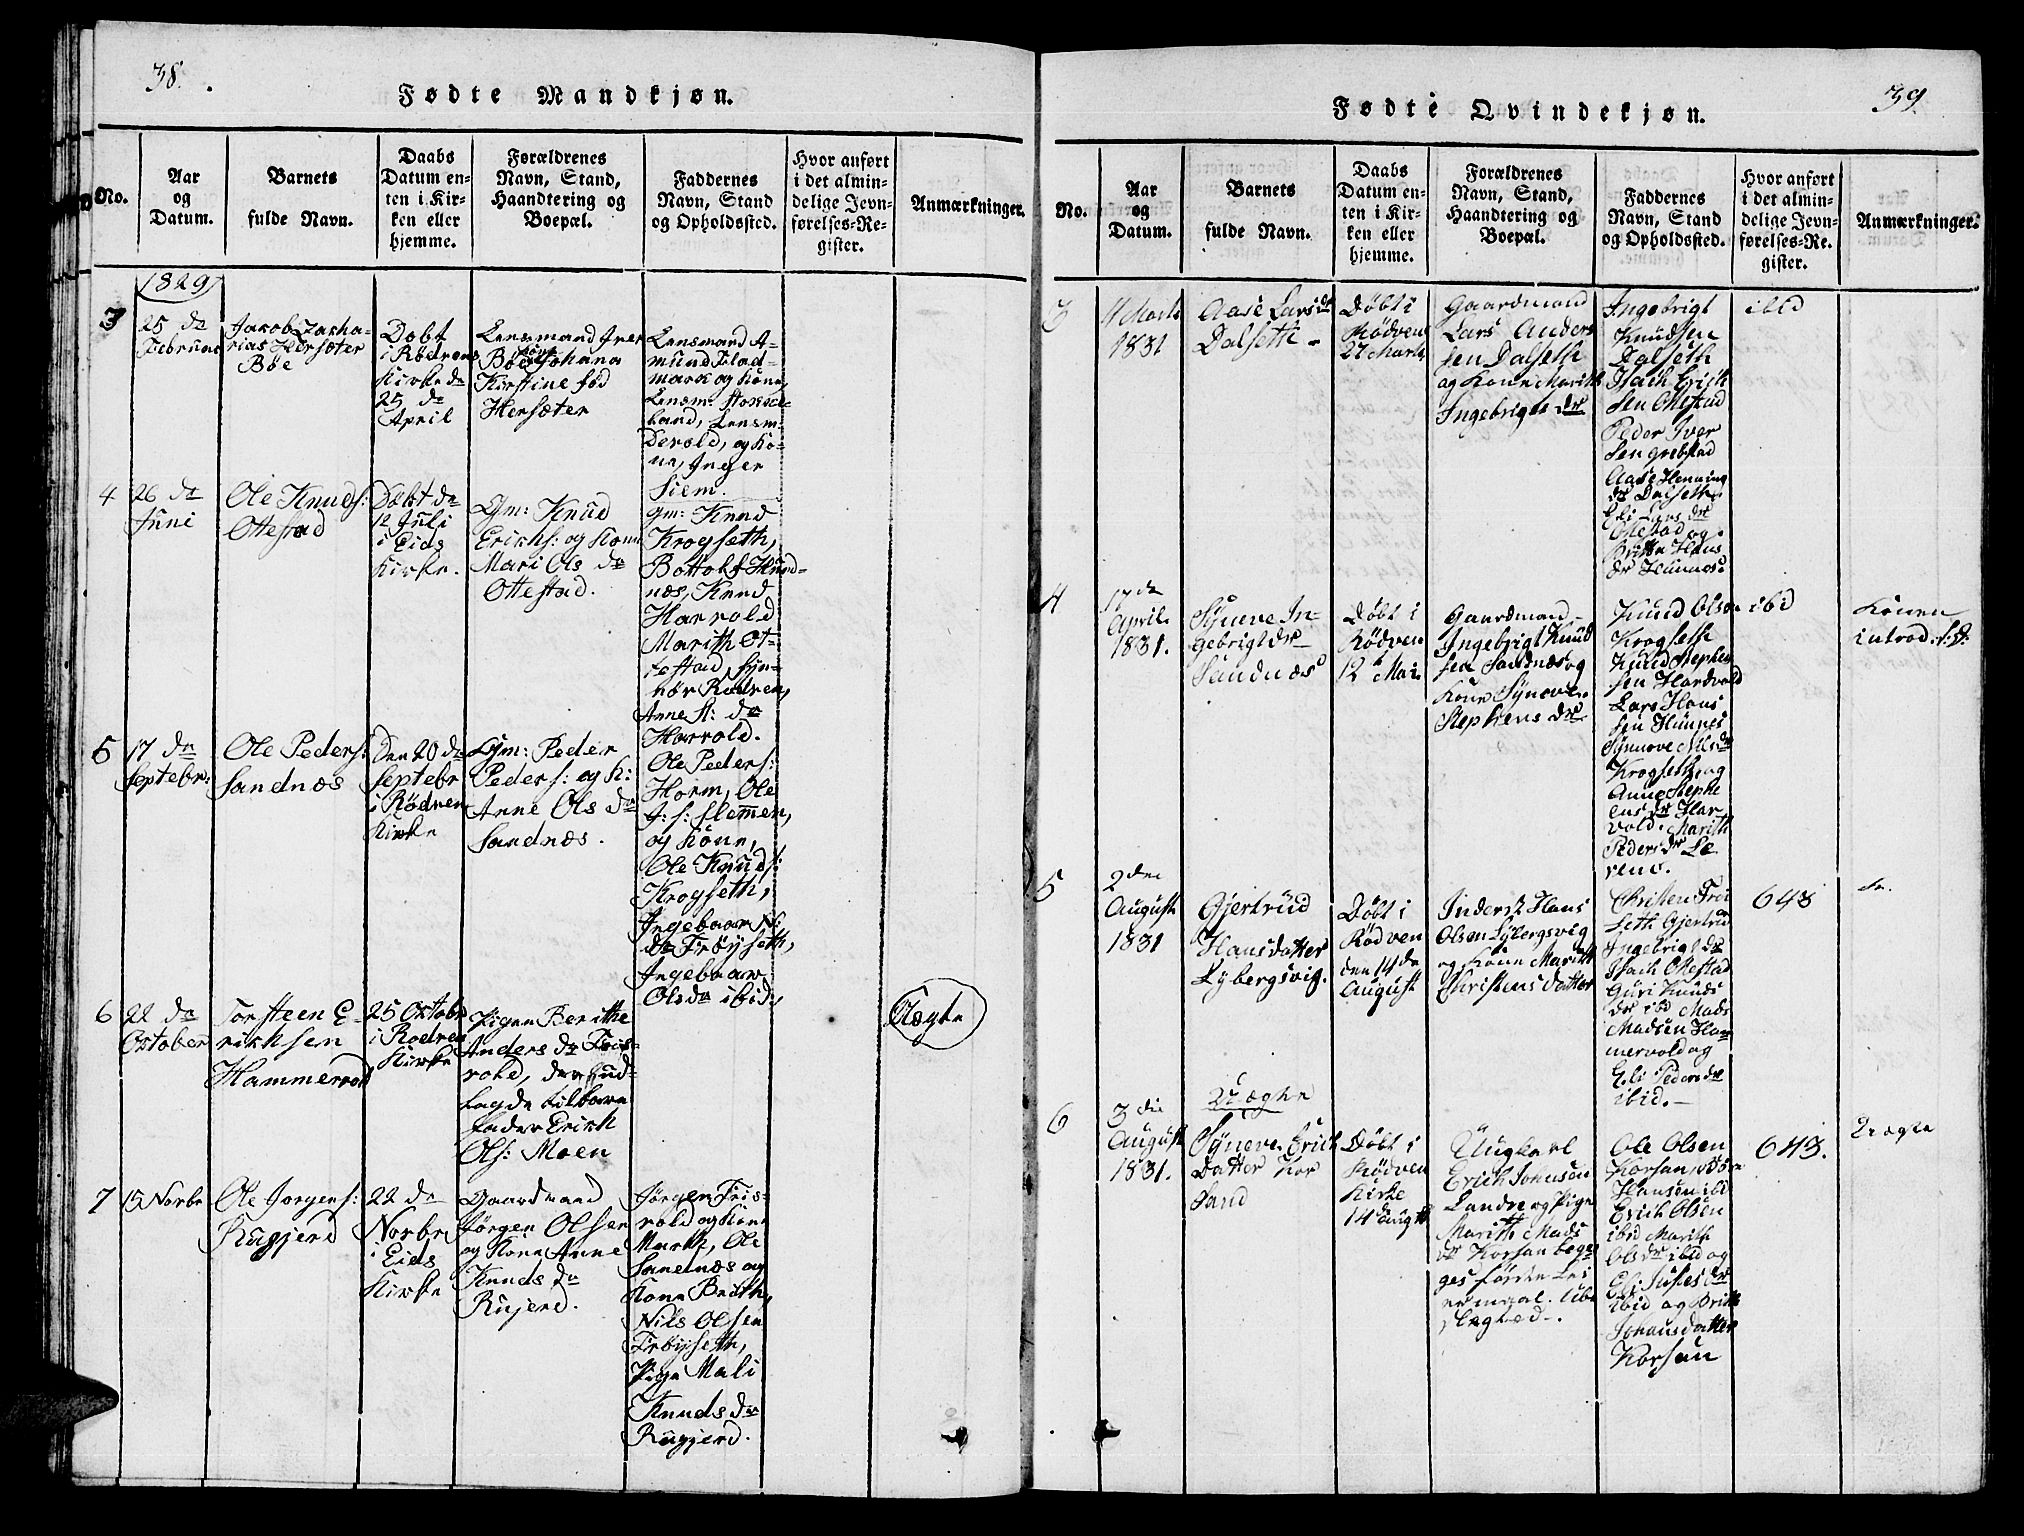 38.
Fødte Mandkjøn.
No.
Aar
og
Datum.
Barnets
fulde Navn.
Daabs
Datum en-
ten i Kir-
ken eller
hjemme.
Forældrenes
Navn, Stand,
Haandtering og
Boepæl.
Faddernes
Navn, Stand
og Opholdssted.
Hvor anført
i det almin-
delige Jevn-
førelses-Re-
gister.
Anmærkninger.
1829
3
25 da
Februar
Jacob Zacha-
rias Hersæter
Bøe
Døbt
i Rødven
Kirke da
25 da
April
Lensmand Iver
Bøe Kone Johana
Kirstine fød
Hersæter
Lensmand A-
mund Flad-
mark og Kone,
Lensm:
land, Lensm:
og Ko-
ne, Inger
Siem.
4
26 da
Juni
Ole Knuds:
Ottestad
Døbt da
12 Juli
i Eids
Kirke.
Gm: Knud
Eriks: og Kone
Mari Ols da
Ottestad.
Gm: Knud
Krogseth,
Bottolf Hund-
næs, Knud
Harvold
Marith Ot-
testad, Syn-
nør Rødven,
Anne St: da
Harvold.
5
17 da
Septebr:
Ole Peders:
Sandnæs
Den 20 da
Septebr
i Rødven
Kirke
Gm: Peder
Peders: og K:
Anne Ols da
Sandnæs.
Ole Peders:
Horm, Ole
J: S: Slemmen,
og Kone,
Ole Knuds:
Krogseth,
Ingebaar N:
da Frøyseth,
Ingebaar
Olsda ibid,
6
22 da
October
Torsteen E-
riksen
Hammervold
25 Octobr
i Rødven
Kirke
Pigen Berithe
Anders da Fris-
vold, den ud-
lagde til barne
fader Erick
Ols: Moen
Uægte
7
15 Novbr
Ole Jørgens:
Rugjerd
22 da
Novbr
i Eids
Kirke
Gaardmand
Jørgen Olsen
og Kone Anne
Knuds da
Rujerd.
Jørgen Fris-
vold og Kone
Marit, Ole
Sandnæs og
Kone Brith,
Nils Olsen
Frøyseth,
Pige Mali
Knuds da
Rugjerd.
39.
Fødte Qvindekjøn.
No.
Aar
og
Datum.
Barnets
fulde Navn.
Daabs
Datum en-
ten i Kir-
ken eller
hjemme.
Forældrenes
Navn, Stand,
Haandtering og
Boepæl.
Faddernes
Navn, Stand
og Opholdssted.
Hvor anført
i det almin-
delige Jevn-
førelses-Re-
gister.
Anmærkninger.
3
4 Marts
1831
Aase Lars dr
Dalseth -
Døbt i
Rødven
27 Marts
Gaardmand
Lars Anders
sen Dalseth
og Kone Marith
Ingebrigts dr
Ingebrigt
Knudsen
Dalseth
Isach Erich
sen Otestad
Peder Iver
sen Grebstad
Aase Henning
dr Dalseth
Eli Lars dr
Otestad og
Britte Hans
dr Hunnes
ibid
4
17 de
April
1831.
Syneve In-
gebrigt dr
Sandnæs
Døbt i
Rødven
12 Mai
Gaardmand
Ingebrigt Knud
sen Sandnæs og
Kone Synove
Stephens dr
Knud Olsen
Krogseth
Knud Stephen
sen Hardvold
Lars Hans
sen Hunnes
Synnove Nils dr
Krogseth og
Anne Stephe
ens dr Har
vold. Marith
Peders dr Le
rem.
ibid
Konen
introd. s: D:
5
2 den
August
1831
Gjertrud
Hansdatter
Lybergsvig.
Døbt i
Rødven
den 14 da
August
Inderst Hans
Olsen Lybergsvig
og Kone Marith
Christens datter
Christen Frei
seth Gjertrud
Ingebrigt dr
Isach Otestad
Guri Knuds
dr ibid Mads
Madsen Ham
mervold og
Eli Peders dr
ibid. -
643
do.
6
3 die
August
1831.
Uægte
Synneve Erich
datter Kor
sand
Døbt i
Rødven
Kirke
14 de Augt
Ungkarl
Erich Johnsen
Landre og Pige
Marith Mads
dr Korsan beg-
ges første Lei
ermaal.
Ole Olsen
Korsan
Hansen ibid
Erich Olsen
ibid Marith
Ols dr ibid og
Eli dr
ibid og Britt
Johansdatter
Korsan
643.
Uægte